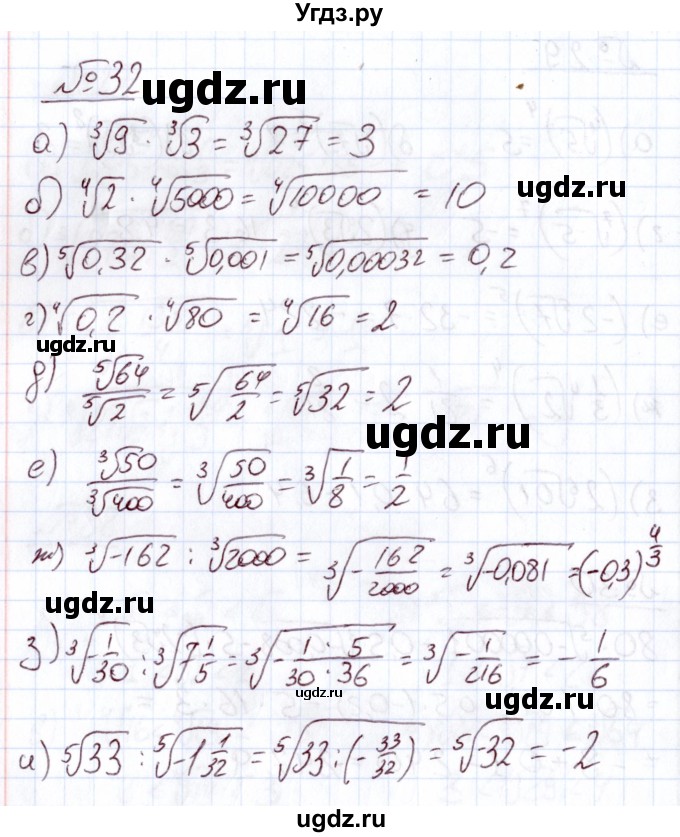 Угдз.ру
№32
ugdz.ru
а) ∛9 · ∛3 = ∛27 = 3
ugdz.ru
б) ∜2 · ∜5000 = ∜10000 = 10
в) ⁵√0,32 · ⁵√0,001 = ⁵√0,00032 = 0,2
г) ∜0,2 · ∜80 = ∜16 = 2
ugdz.ru
д) ⁵√64 / ⁵√2 = ⁵√(64/2) = ⁵√32 = 2
ugdz.ru
е) ∛50 / ∛400 = ∛(50/400) = ∛(1/8) = 1/2
ж) ∛-162 : ∛2000 = ∛(-162/2000) = ∛-0,081 = (-0,3)^(4/3)
ugdz.ru
з) ∛(-1/30) : ∛(7 1/5) = ∛(-(1·5)/(30·36)) = ∛(-1/216) = -1/6
ugdz.ru
ugdz.ru
и) ⁵√33 : ⁵√(-1 1/32) = ⁵√(33:(-33/32)) = ⁵√-32 = -2
ugdz.ru
ugdz.ru